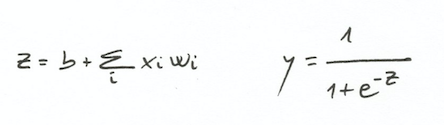 z = b + ∑_i x_i w_i
y = 1 / (1 + e^{-z})